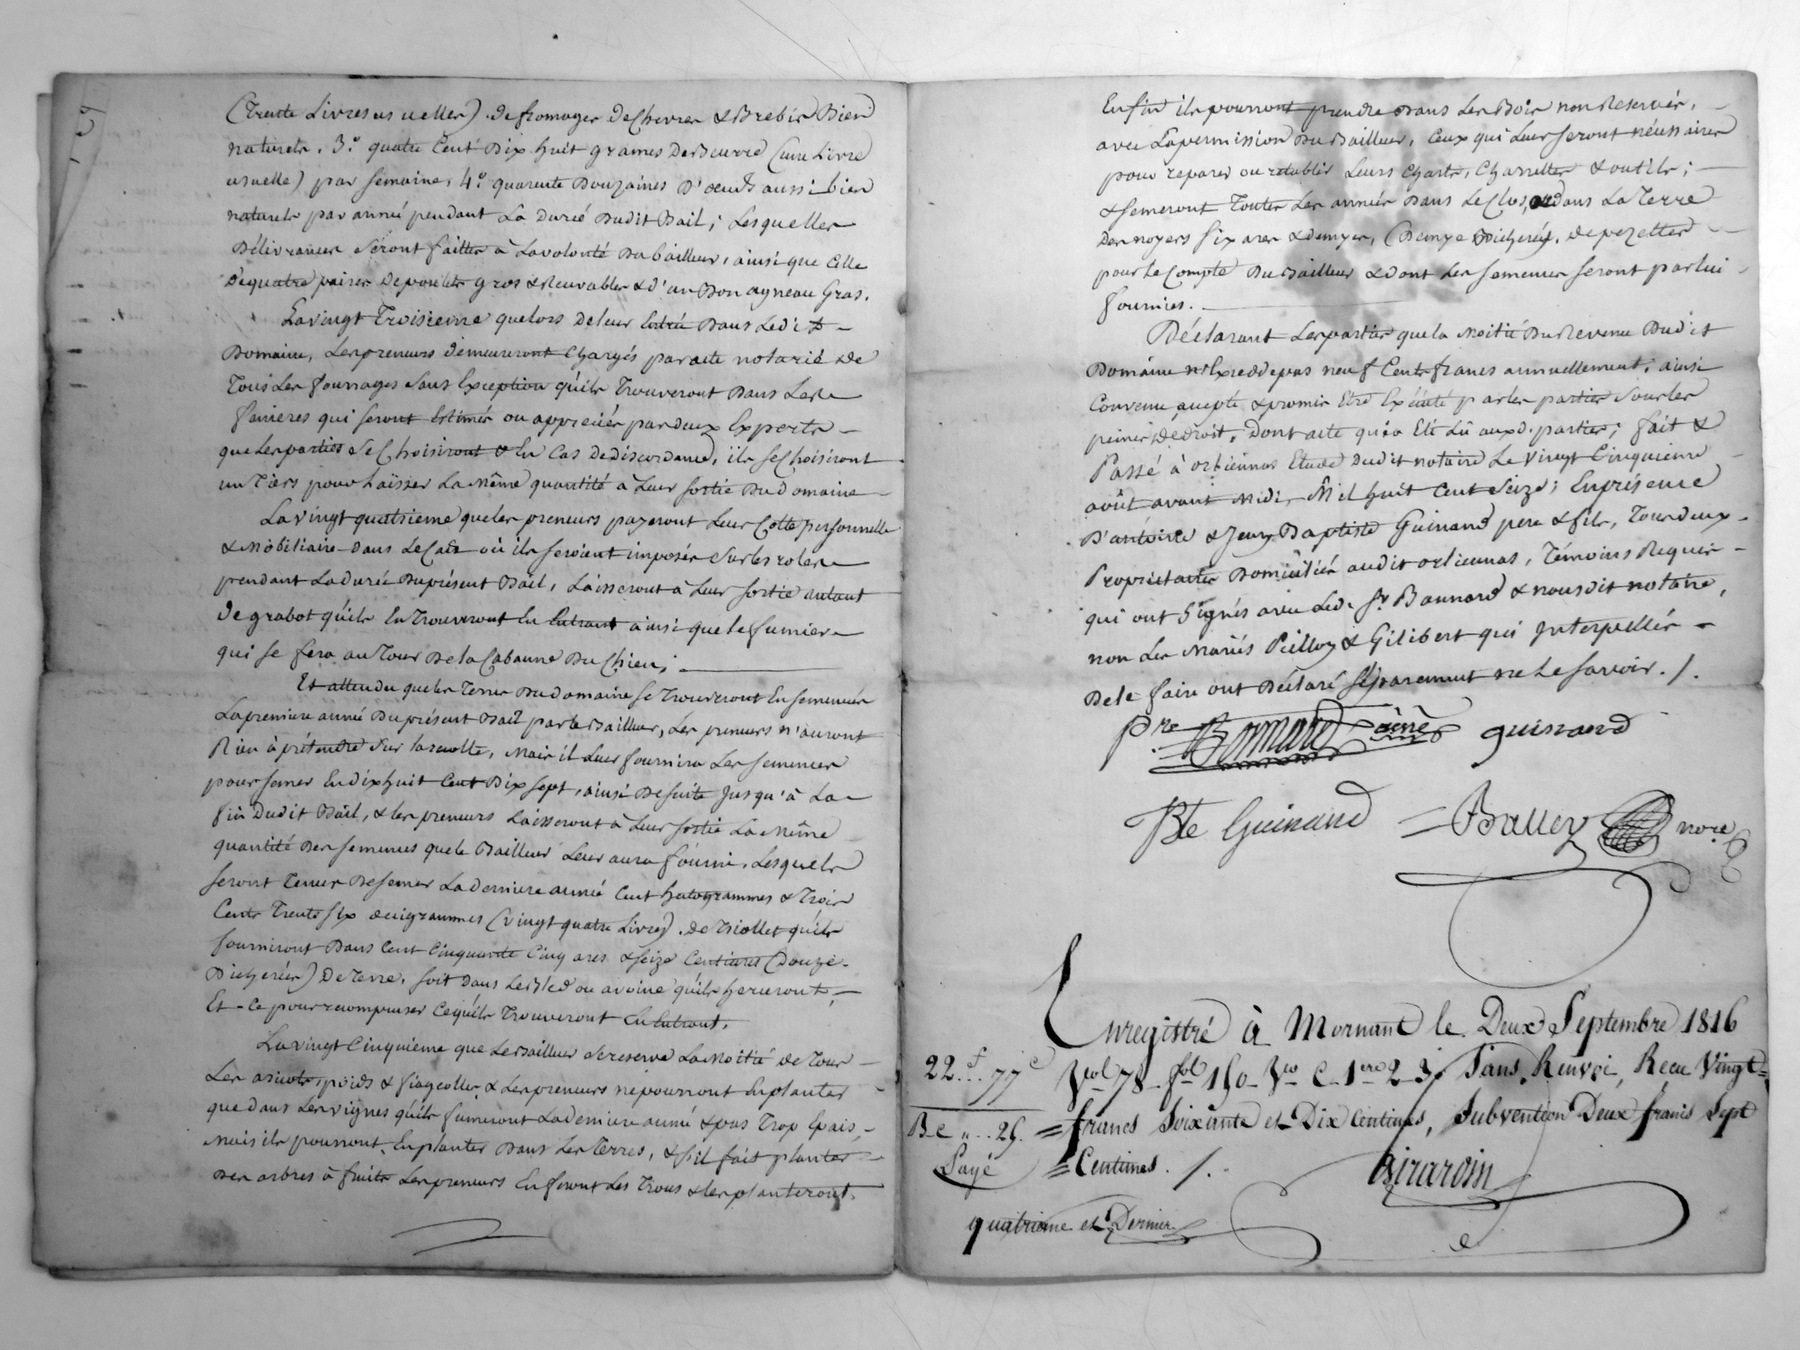 (Trente Livres usuelles) de fromages de Chevres & Brebis Bien
naturels. 3.o quatre Cent Dix huit grames de Beurre (une Livre
usuelle) par semaine, 4.o quarente Douzaines d'oeufs aussi bien
naturels par année pendant La Durée Dudit Bail; Lesquelles
Délivrances seront faittes à La volonté Du bailleur, ainsi que celle
de quatre paires de poulets gros & Recevables & d'un Bon agneau Gras.
La vingt Troisieme que lors de leur Entrée Dans Ledit
Domaine, Les preneurs demeureront Chargés par acte notarié de
Tous Les fourrages sans Exception qu'ils Trouveront Dans Les
fenieres qui seront Estimés ou appreciés par deux Experts
que Les parties se Choisiront & En Cas de discordance, ils se Choisiront
un Tiers pour Laisser La même quantité à Leur sortie Du Domaine
La vingt quatrieme que les preneurs payeront Leur Cotte personnelle
& Mobiliaire Dans Le Cas où ils seroient imposés sur les roles
pendant La durée Du présent Bail, Laisseront à Leur sortie autant
de grabot qu'ils En Trouveront En Entrant ainsi que le fumier
qui se fera autour De la Cabanne Du Chien;
Et attendu que les Terres Du domaine se Trouveront Ensemencées
La premiere année Du présent Bail par le Bailleur, Les preneurs n'auront
Rien à prétendre sur la recolte, Mais il Leur fournira Les semences
pour semer En dix huit Cent Dix sept, ainsi De suite jusqu'à La
fin Dudit Bail, & les preneurs Laisseront à Leur sortie La Même
quantité Des semences que le Bailleur Leur aura fourni, Lesquels
seront Tenus De semer La derniere année Cent hectogrammes & Trois
Cents Trente six decigrammes (vingt quatre Livres) de Triollet qu'ils
fourniront Dans Cent Cinquante Cinq ares & seize Centiares (Douze
Bicherées) De Terre, soit dans Le Bled ou avoine qu'ils
Et ce pour recompenser ce qu'ils Trouveront En Entrant.
La vingt Cinquieme que Le Bailleur se reserve La Moitié de Tous
Les aricots, poids & & Les preneurs ne pourront En planter
que dans Les vignes qu'ils fumeront La derniere année & pas Trop Epais,
Mais ils pourront En planter Dans Les Terres, & s'il fait planter
Des arbres à fruits Les preneurs En feront Les Trous & les planteront.
Enfin ils pourront prendre Dans Les Bois non Reservés,
avec La permission Du Bailleur, Ceux qui Leur seront nécessaires
pour reparer ou retablir Leurs Charts, Charrettes & outils;
& semeront Toutes Les années Dans Le Clos, ou dans La Terre
Des noyers six ares & demyes, (Demye Bicherée), de pezettes
pour Le Compte Du Bailleur & dont Les semences seront par lui
fournies.
Déclarant Les parties que la Moitié Du Revenu Dudit
Domaine n'Excede pas neuf Cents francs annuellement; ainsi
Convenu accepté & promis Etre Exécuté par les parties sous les
peines de droit, Dont acte qui a Eté Lû aux d. parties; fait &
Passé à orliennas Etude Dudit notaire Le Vingt Cinquieme
août avant Midi, Mil huit Cent Seize; En présence
D'antoine & Jean Baptiste Guinand pere & fils, Tous deux
Propriétaires Domiciliés audit orliennas, Témoins Requis
qui ont signés avec Led. Sr. Bonnard & nous dit notaire,
non Les Mariés Peilloy & Gilibert qui Interpellés
De le faire ont Déclaré séparement ne Le savoir. /.
Pre Bonnard ainé guinand
Bte Guinand Balley nore
Enregistré à Mornant le Deux Septembre 1816
22f..77c Vol 78 fol 150 Vo C. 1ere 2 3 Sans Renvoi, Recu Vingt
Be „..25. = francs Soixante et Dix Centimes, Subvention Deux francs Sept
Payé = Centimes. /. Girardin
quatrieme et Dernier